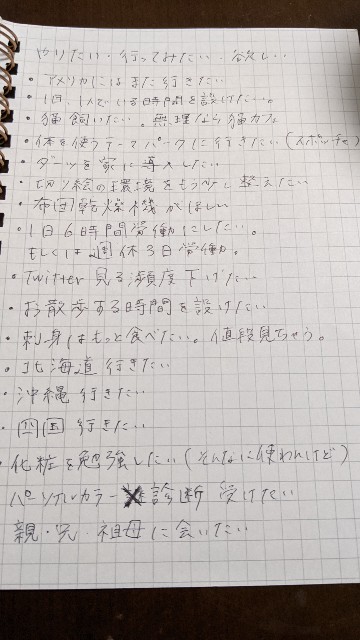 やりたい・行ってみたい・欲しい
・アメリカにはまた行きたい
・1日、1人でいる時間を設けたい。
・猫飼いたい。無理なら猫カフェ
・体を使うテーマパークに行きたい(スポッチャ)
・ダーツを家に導入したい
・切り絵の環境をもう少し整えたい
・布団乾燥機がほしい
・1日6時間労働にしたい。
もしくは週休3日労働。
・Twitter見る頻度下げたい
・お散歩する時間を設けたい
・刺身はもっと食べたい。値段見ちゃう。
・北海道行きたい
・沖縄行きたい
・四国行きたい
・化粧を勉強したい(そんなに使わんけど)
パーソナルカラー診断 受けたい
親・兄・祖母に会いたい